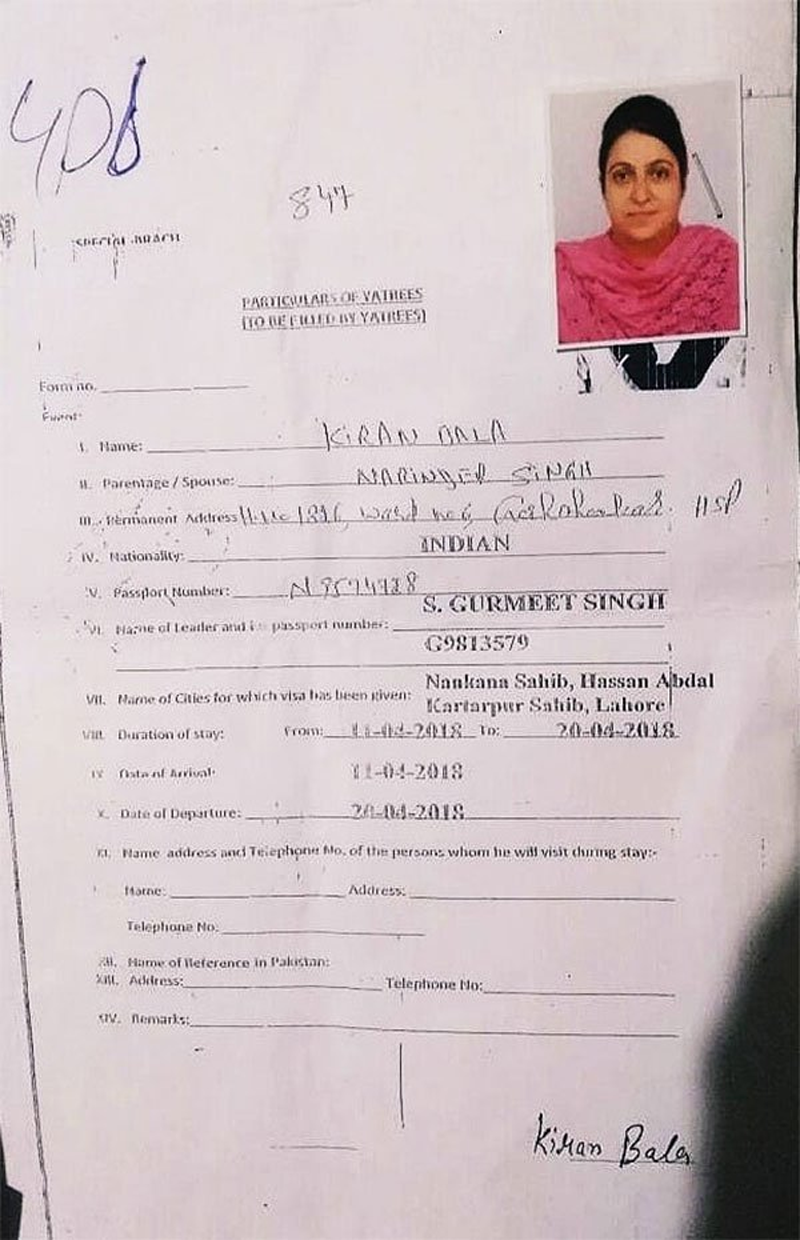 408
847
SPECIAL BRACH
PARTICULARS OF YATREES
(TO BE FILLED BY YATREES)
Form no.
Event:
I. Name: KIRAN BALA
II. Parentage / Spouse: NARINDER SINGH
III. Permanent Address ward no 6, HSP
IV. Nationality: INDIAN
V. Passport Number:
S. GURMEET SINGH
VI. Name of Leader and passport number:
G9813579
Nankana Sahib, Hassan Abdal
VII. Name of Cities for which visa has been given:
Kartarpur Sahib, Lahore
VIII. Duration of stay: From: 11-04-2018 To: 20-04-2018
IX Date of Arrival: 11-04-2018
X. Date of Departure: 20-04-2018
XI. Name address and Telephone No. of the persons whom he will visit during stay:-
Name: Address:
Telephone No:
XII. Name of Reference in Pakistan:
XIII. Address: Telephone No:
XIV. Remarks:
Kiran Bala